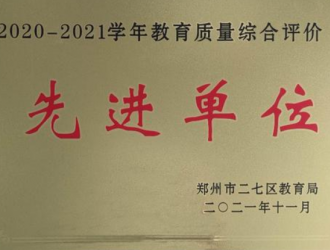 2020-2021学年教育质量综合评价
先进单位
郑州市二七区教育局
二〇二一年十一月